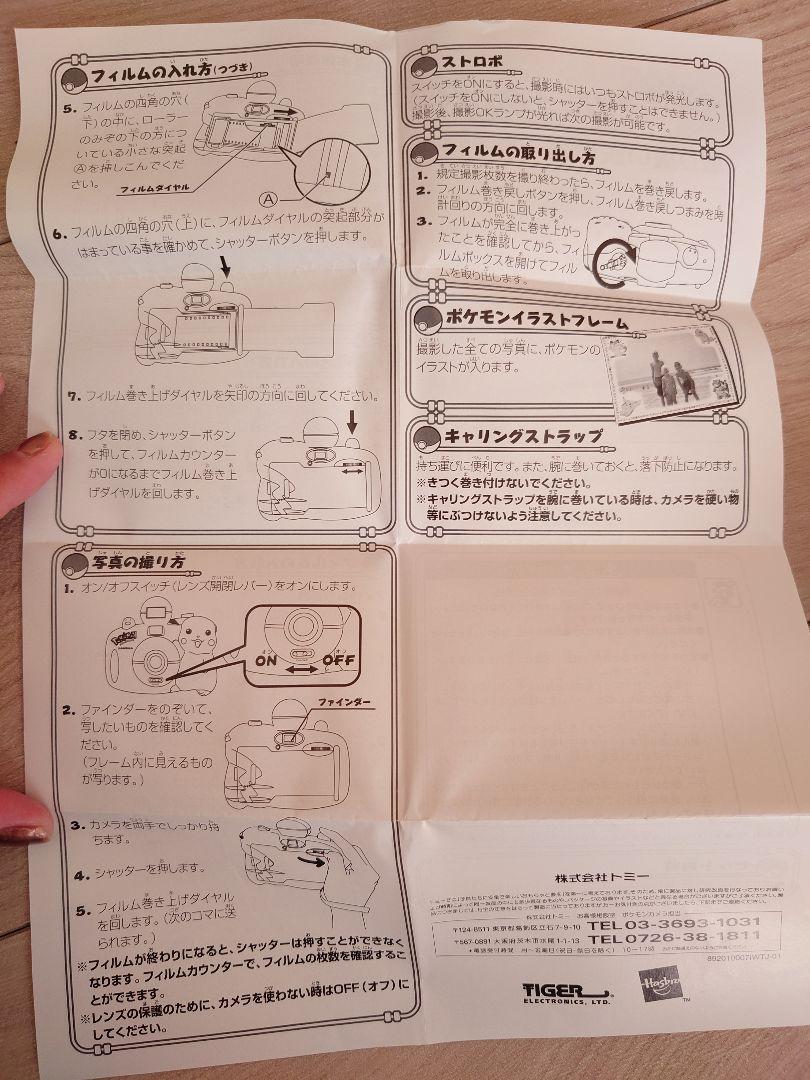 フィルムの入れ方(つづき)
5. フィルムの四角の穴(
下)の中に、ローラー
のみぞの下の方につ
いている小さな突起
Ⓐを押しこんでくだ
さい。
フィルムダイヤル
Ⓐ
6. フィルムの四角の穴(上)に、フィルムダイヤルの突起部分が
はまっている事を確かめて、シャッターボタンを押します。
7. フィルム巻き上げダイヤルを矢印の方向に回してください。
8. フタを閉め、シャッターボタン
を押して、フィルムカウンター
が0になるまでフィルム巻き上
げダイヤルを回します。
写真の撮り方
1. オン/オフスイッチ(レンズ開閉レバー)をオンにします。
オン
オフ
ON
OFF
2. ファインダーをのぞいて、
写したいものを確認してく
ださい。
(フレーム内に見えるもの
が写ります。)
ファインダー
3. カメラを両手でしっかり持
ちます。
4. シャッターを押します。
5. フィルム巻き上げダイヤル
を回します。(次のコマに送
られます。)
※フィルムが終わりになると、シャッターは押すことができなく
なります。フィルムカウンターで、フィルムの枚数を確認するこ
とができます。
※レンズの保護のために、カメラを使わない時はOFF(オフ)に
してください。
ストロボ
スイッチをONにすると、撮影時にはいつもストロボが発光します。
(スイッチをONにしないと、シャッターを押すことはできません。)
撮影後、撮影OKランプが光れば次の撮影が可能です。
フィルムの取り出し方
1. 規定撮影枚数を撮り終わったら、フィルムを巻き戻します。
2. フィルム巻き戻しボタンを押し、フィルム巻き戻しつまみを時
計回りの方向に回します。
3. フィルムが完全に巻き上がっ
たことを確認してから、フィ
ルムボックスを開けてフィル
ムを取り出します。
ポケモンイラストフレーム
撮影した全ての写真に、ポケモンの
イラストが入ります。
キャリングストラップ
持ち運びに便利です。また、腕に巻いておくと、落下防止になります。
※きつく巻き付けないでください。
※キャリングストラップを腕に巻いている時は、カメラを硬い物
等にぶつけないよう注意してください。
株式会社トミー
株式会社トミー お客様相談室 ポケモンカメラ係
〒124-8511 東京都葛飾区立石7-9-10 TEL 03-3693-1031
〒567-0891 大阪府茨木市水尾1-1-13 TEL 0726-38-1811
892010007IWTJ-01
TIGER
ELECTRONICS, LTD.
Hasbro
TM